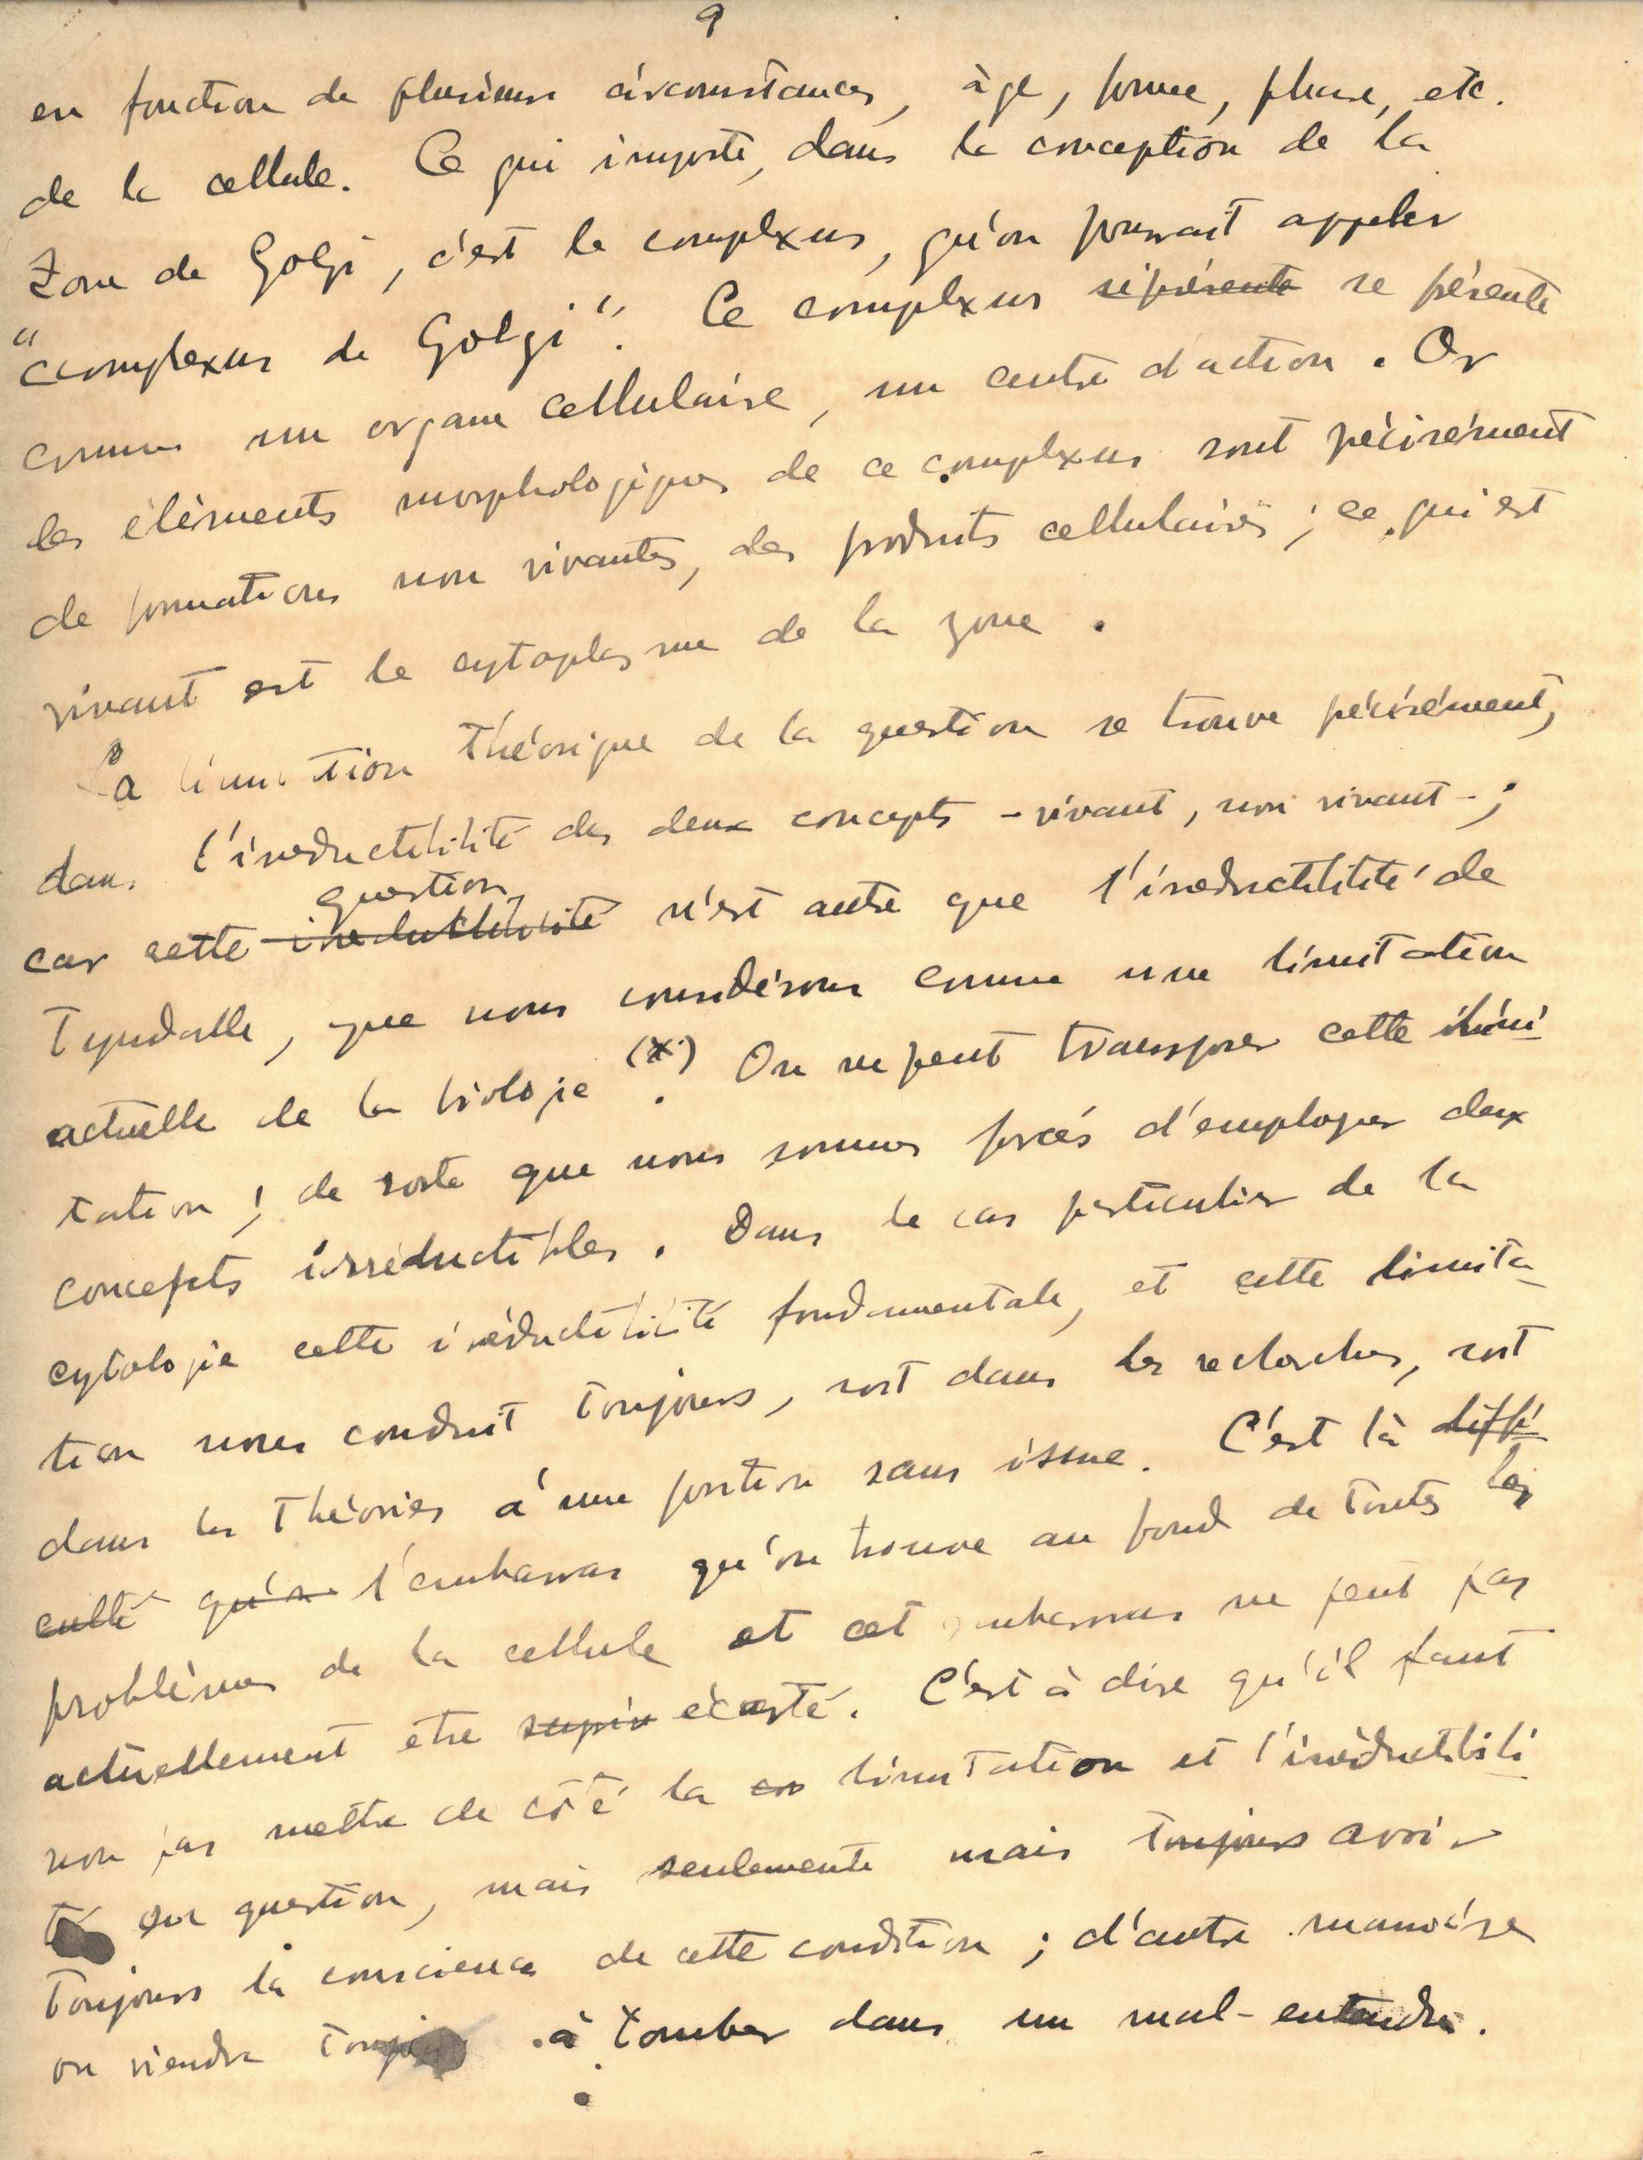 9
en fonction de plusieurs circonstances, âge, forme, phase, etc.
de la cellule. Ce qui importe, dans la conception de la
Zone de Golgi, c'est le complexus, qu'on pourrait appeler
"complexus de Golgi". Ce complexus représente se présente
comme un organe cellulaire, un centre d'action. Or
les élèments morphologiques de ce complexus sont précisément
de formations non vivantes, des produits cellulaires; ce qui est
vivant est le cytoplasme de la zone.
La limitation théorique de la question se trouve précisément,
dans l'irreductibilité des deux concepts - vivant, non vivant -;
question
car cette irreductibilité n'est autre que l'irreductibilité de
Tyndalle, que nous considérons comme une limitation
actuelle de la biologie (x). On ne peut transposer cette limi
tation; de sorte que nous sommes forcés d'employer deux
concepts irréductibles. Dans le cas particulier de la
cytologie cette irréductibilité fondamentale, et cette limita
tion nous conduit toujours, soit dans les recherches, soit
dans les théories à une position sans issue. C'est là diffi
culté qu'on l'embarras qu'on trouve au fond de toutes les
problèmes de la cellule et cet embarras ne peut pas
actuellement etre écarté. C'est à dire qu'il faut
non pas mettre de côté la limitation et l'irréductibili
té en question, mais seulement mais toujours avoir
Toujours la conscience de cette condition; d'autre manière
on viendra à tomber dans un mal-entendu.